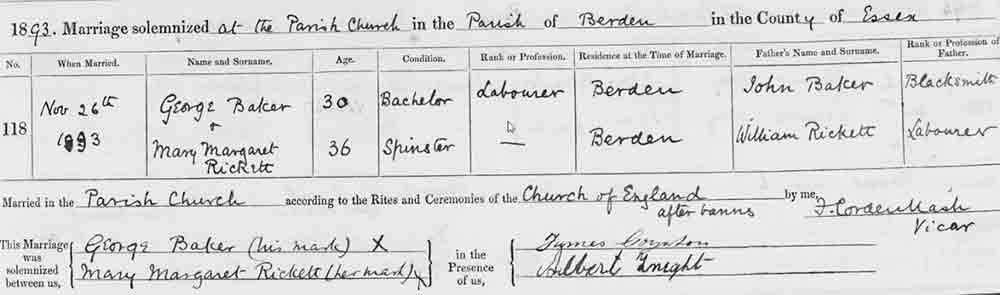 1893. Marriage solemnized at the Parish Church in the Parish of Berden in the County of Essex
No. When Married. Name and Surname. Age. Condition. Rank or Profession. Residence at the Time of Marriage. Father's Name and Surname. Rank or Profession of Father.
118 Nov 26th 1893 George Baker 30 Bachelor Labourer Berden John Baker Blacksmith
&
Mary Margaret Rickett 36 Spinster — Berden William Rickett Labourer
Married in the Parish Church according to the Rites and Ceremonies of the Church of England after banns by me,
Vicar
This Marriage was solemnized between us, George Baker (his mark) X in the Presence of us,
Mary Margaret Rickett (her mark) X Albert Knight